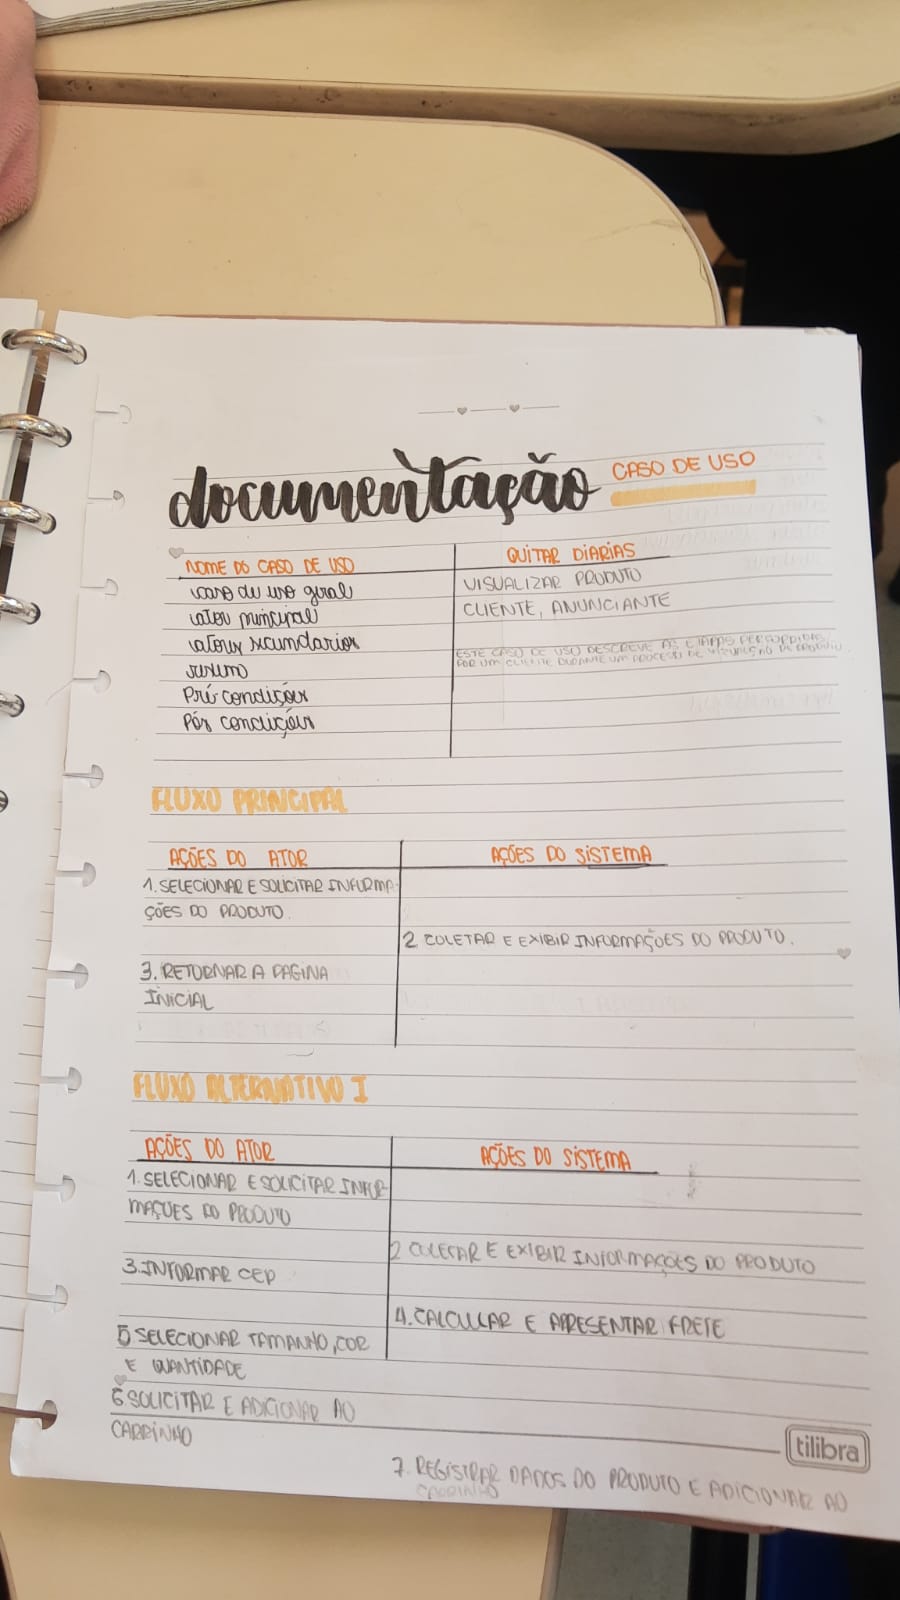 documentação CASO DE USO
NOME DO CASO DE USO QUITAR DIARIAS
caso de uso geral VISUALIZAR PRODUTO
ator principal CLIENTE, ANUNCIANTE
atores secundarios
resumo ESTE CASO DE USO DESCREVE AS ETAPAS PERCORRIDAS
POR UM CLIENTE DURANTE UM PROCESSO DE VISUALIZAÇÃO DE PRODUTO
Pré condições
Pós condições
FLUXO PRINCIPAL
AÇÕES DO ATOR AÇÕES DO SISTEMA
1. SELECIONAR E SOLICITAR INFORMA-
ÇÕES DO PRODUTO.
2 COLETAR E EXIBIR INFORMAÇÕES DO PRODUTO.
3. RETORNAR A PAGINA
INICIAL
FLUXO ALTERNATIVO I
AÇÕES DO ATOR AÇÕES DO SISTEMA
1. SELECIONAR E SOLICITAR INFOR-
MAÇÕES DO PRODUTO
2 COLETAR E EXIBIR INFORMAÇÕES DO PRODUTO
3. INFORMAR CEP
4. CALCULAR E APRESENTAR FRETE
5 SELECIONAR TAMANHO, COR
E QUANTIDADE
6 SOLICITAR E ADICIONAR AO
CARRINHO
tilibra
7. REGISTRAR DADOS DO PRODUTO E ADICIONAR AO
CARRINHO